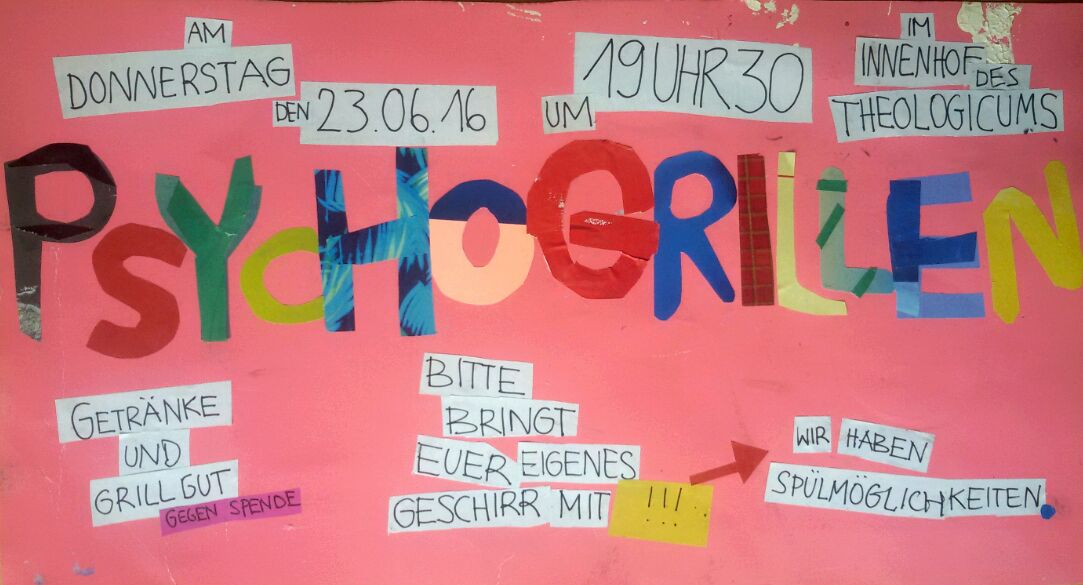 AM
DONNERSTAG
DEN 23.06.16
UM 19UHR30
IM
INNENHOF
DES
THEOLOGICUMS
PSYCHOGRILLEN
GETRÄNKE
UND
GRILLGUT
GEGEN SPENDE
BITTE
BRINGT
EUER EIGENES
GESCHIRR MIT !!!
WIR HABEN
SPÜLMÖGLICHKEITEN.